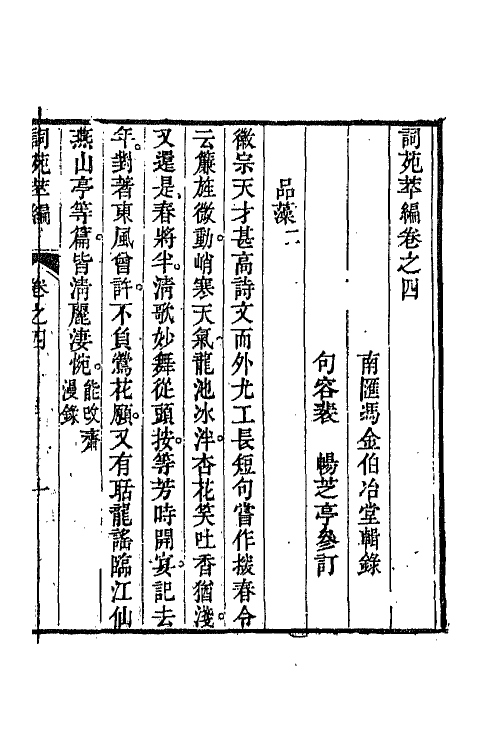 詞苑萃編卷之四
南匯馮金伯冶堂輯錄
句容裴 暢芝亭參訂
品藻二
徽宗天才甚高詩文而外尤工長短句嘗作探春令
云簾旌微動峭寒天氣龍池冰泮杏花笑吐香猶淺
又還是春將半清歌妙舞從頭按等芳時開宴記去
年對著東風曾許不負鶯花願又有聒龍謠臨江仙
燕山亭等篇皆清麗淒惋能改齋
漫錄
詞苑萃編 卷之四 一